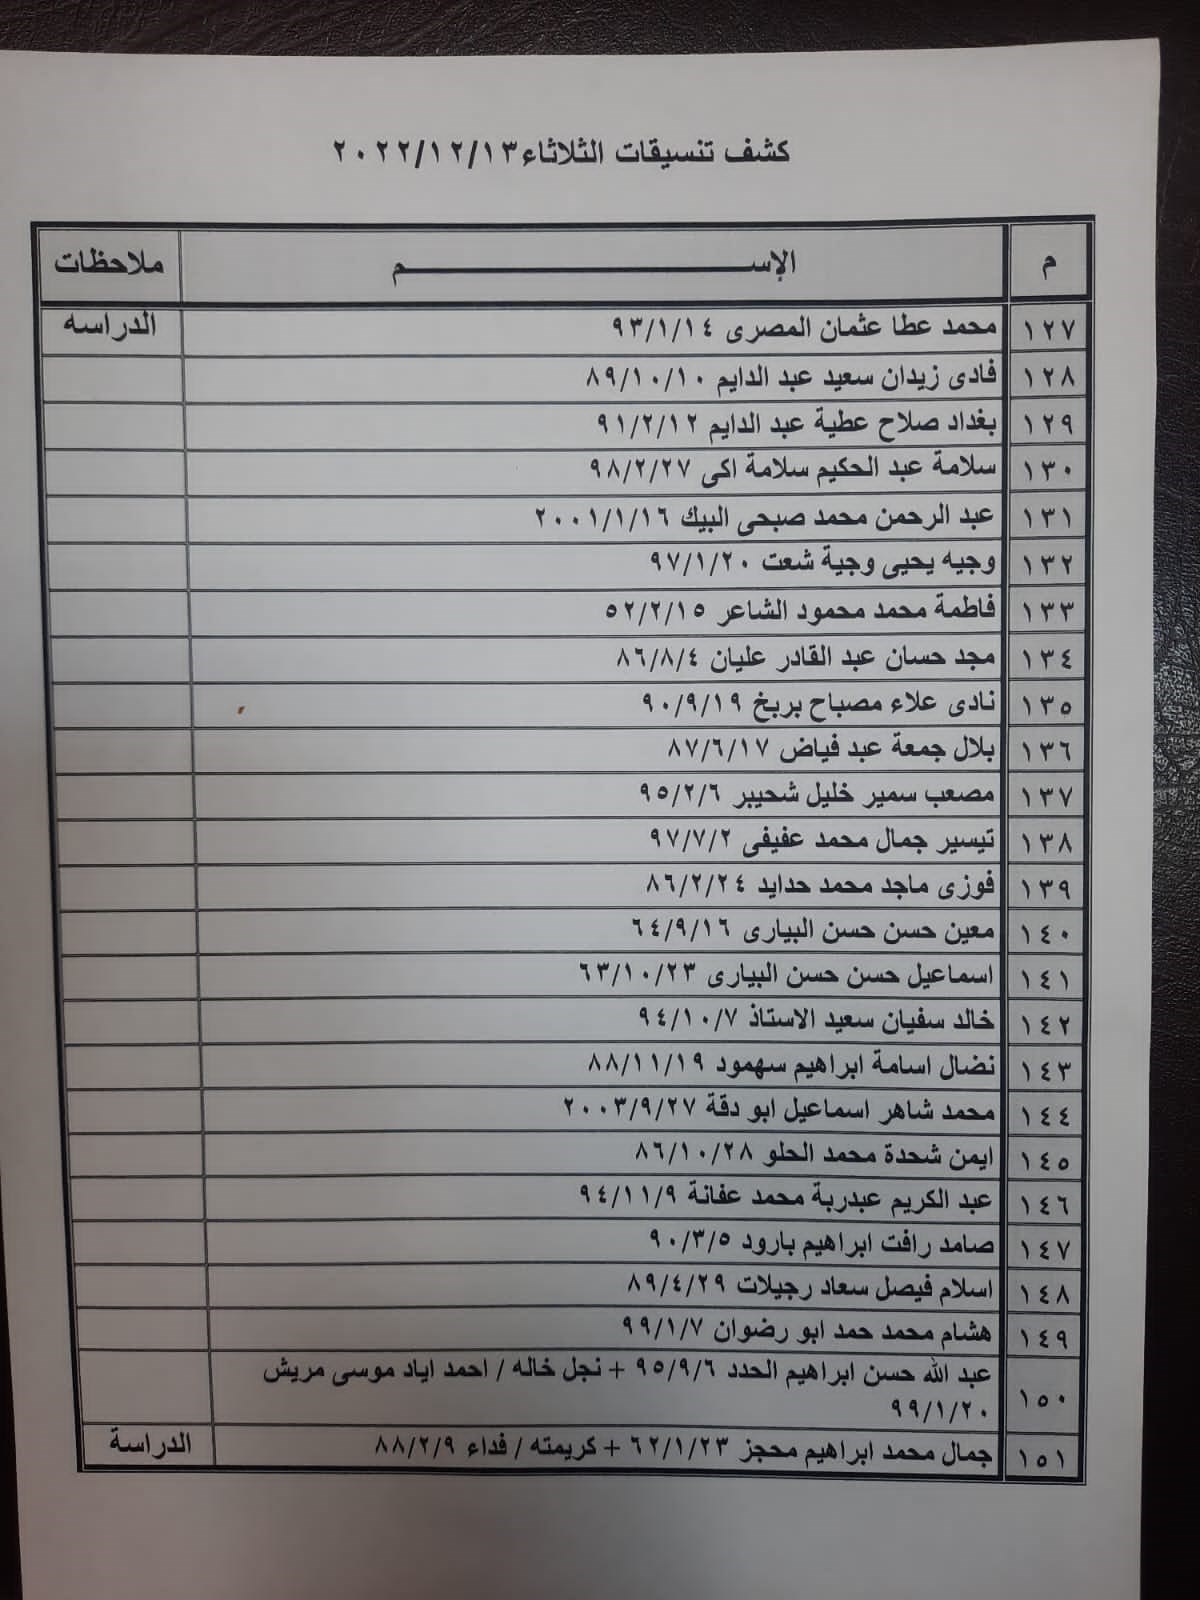 كشف تنسيقات الثلاثاء ٢٠٢٢/١٢/١٣
م الإســـــــم ملاحظات
١٢٧ محمد عطا عثمان المصرى ٩٣/١/١٤ الدراسه
١٢٨ فادى زيدان سعيد عبد الدايم ٨٩/١٠/١٠
١٢٩ بغداد صلاح عطية عبد الدايم ٩١/٢/١٢
١٣٠ سلامة عبد الحكيم سلامة اكى ٩٨/٢/٢٧
١٣١ عبد الرحمن محمد صبحى البيك ٢٠٠١/١/١٦
١٣٢ وجيه يحيى وجية شعت ٩٧/١/٢٠
١٣٣ فاطمة محمد محمود الشاعر ٥٢/٢/١٥
١٣٤ مجد حسان عبد القادر عليان ٨٦/٨/٤
١٣٥ نادى علاء مصباح بربخ ٩٠/٩/١٩
١٣٦ بلال جمعة عبد فياض ٨٧/٦/١٧
١٣٧ مصعب سمير خليل شحيبر ٩٥/٢/٦
١٣٨ تيسير جمال محمد عفيفى ٩٧/٧/٢
١٣٩ فوزى ماجد محمد حدايد ٨٦/٢/٢٤
١٤٠ معين حسن حسن البيارى ٦٤/٩/١٦
١٤١ اسماعيل حسن حسن البيارى ٦٣/١٠/٢٣
١٤٢ خالد سفيان سعيد الاستاذ ٩٤/١٠/٧
١٤٣ نضال اسامة ابراهيم سهمود ٨٨/١١/١٩
١٤٤ محمد شاهر اسماعيل ابو دقة ٢٠٠٣/٩/٢٧
١٤٥ ايمن شحدة محمد الحلو ٨٦/١٠/٢٨
١٤٦ عبد الكريم عبدربة محمد عفانة ٩٤/١١/٩
١٤٧ صامد رافت ابراهيم بارود ٩٠/٣/٥
١٤٨ اسلام فيصل سعاد رجيلات ٨٩/٤/٢٩
١٤٩ هشام محمد حمد ابو رضوان ٩٩/١/٧
١٥٠ عبد الله حسن ابراهيم الحدد ٩٥/٩/٦ + نجل خاله / احمد اياد موسى مريش
٩٩/١/٢٠
١٥١ جمال محمد ابراهيم محجز ٦٢/١/٢٣ + كريمته / فداء ٨٨/٢/٩ الدراسة